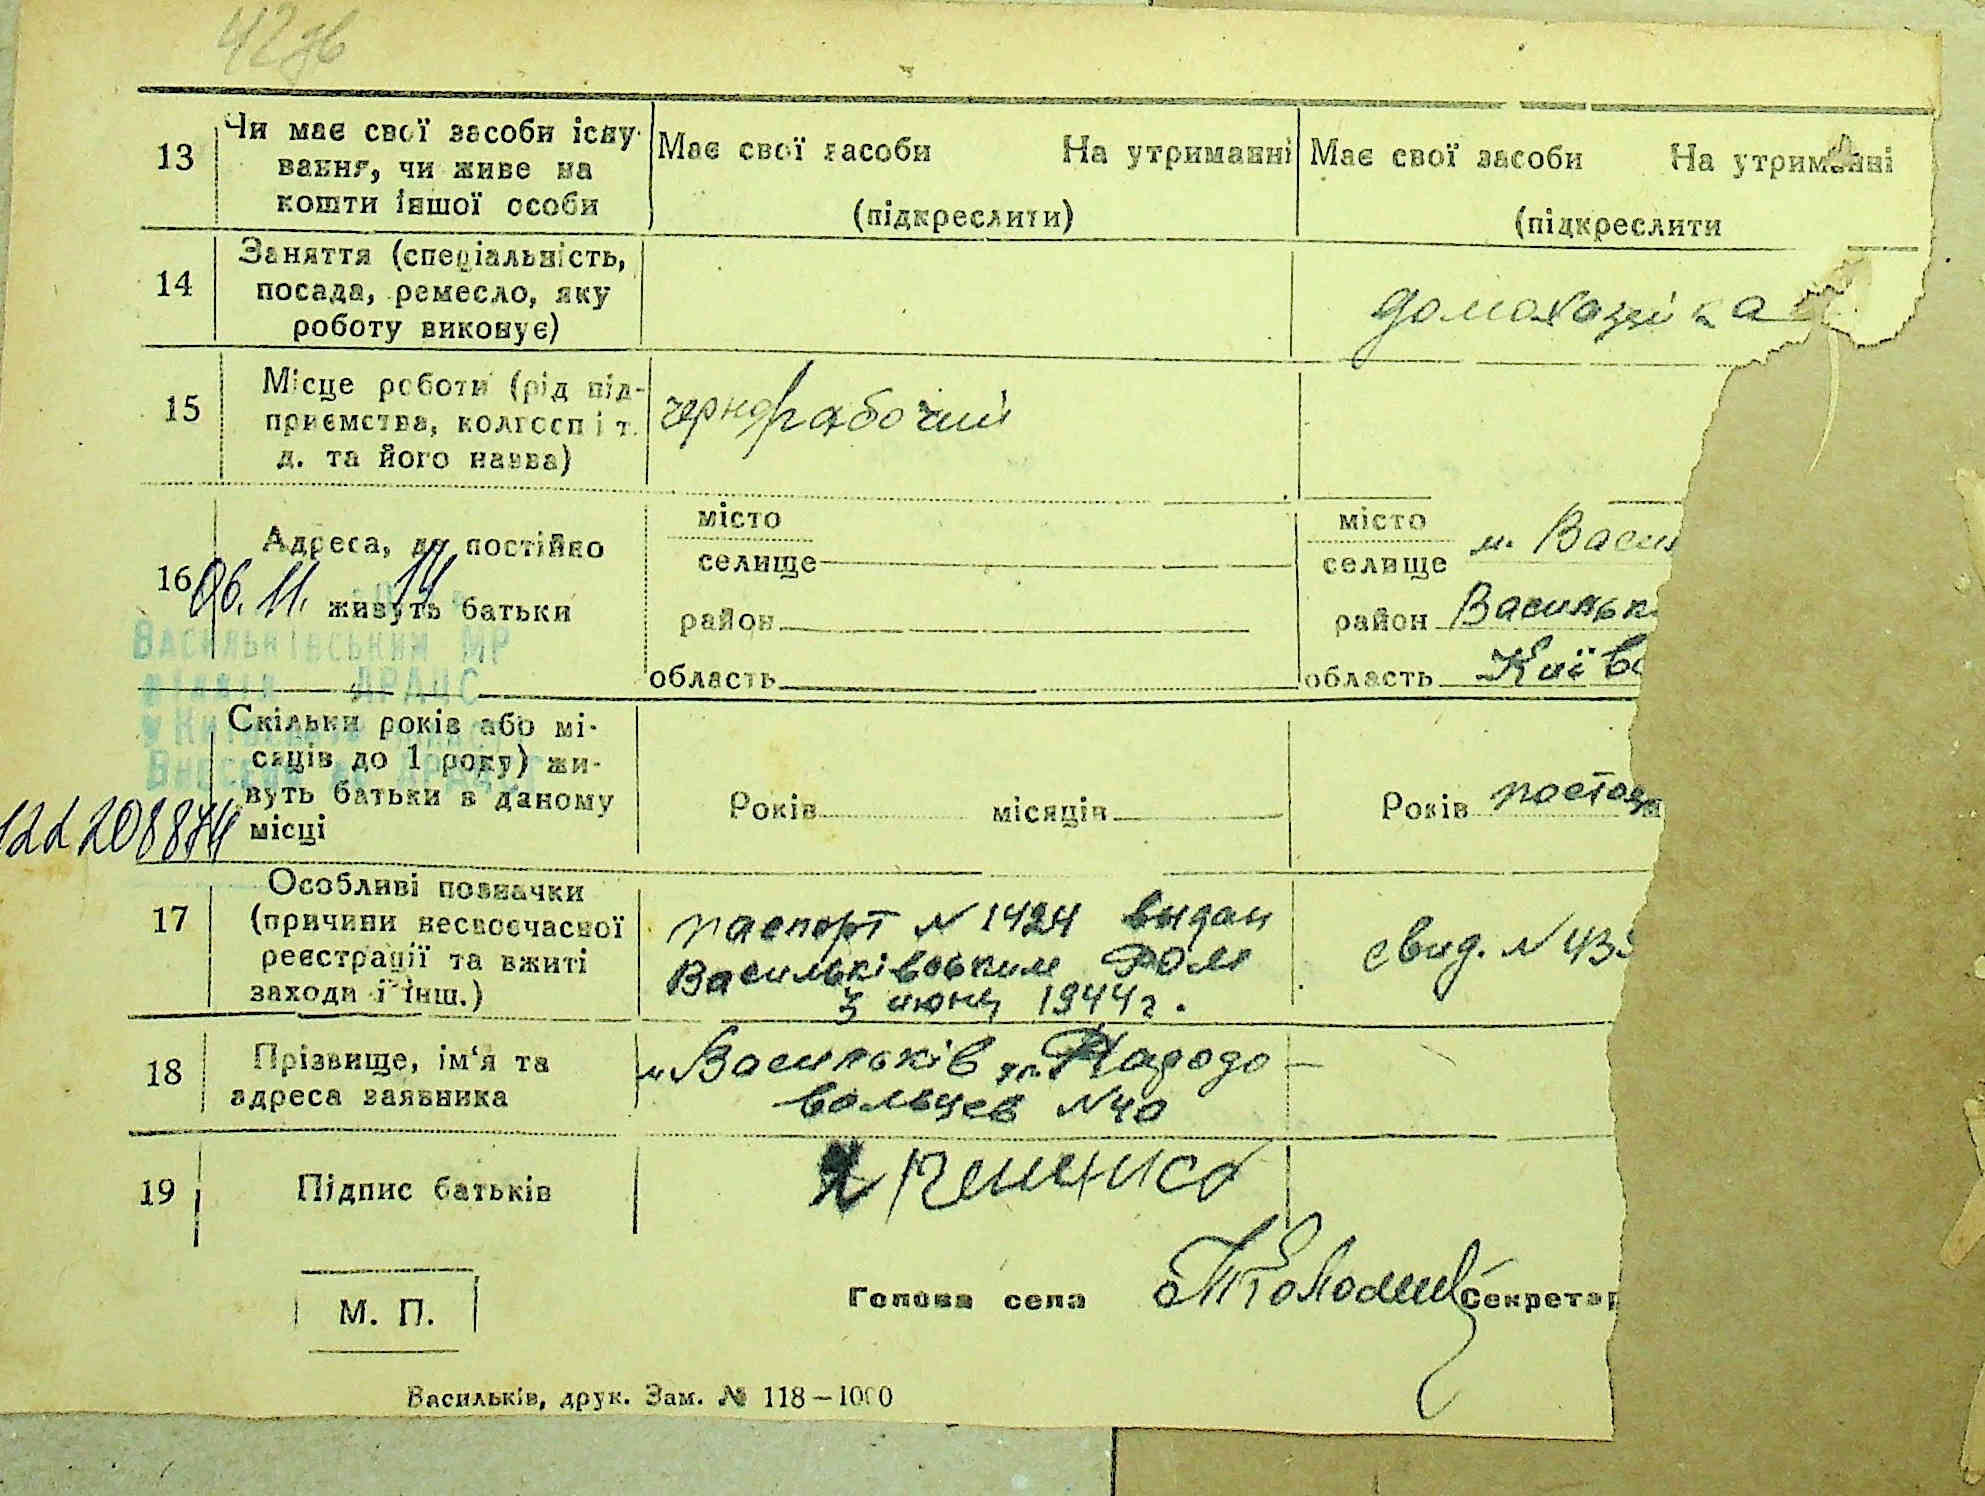 13
Чи має свої засоби існу-
вання, чи живе на
кошти іншої особи
Має свої засоби На утриманні
(підкреслити)
Має свої засоби На утриманні
(підкреслити
14
Заняття (спеціальність,
посада, ремесло, яку
роботу виконує)
домохазяйка
15
Місце роботи (рід під-
приємства, колгосп і т.
д. та його назва)
чернорабочий
16
Адреса, де постійно
живуть батьки
06.11. 14
місто
селище
район
область
місто
селище
м. Васи
район Васильк
область Київ
Васильківський МР
ДРАЦС
Скільки років або мі-
сяців до 1 року) жи-
вуть батьки в даному
місці
Років місяців
Років постоян
17
Особливі позначки
(причини несвоєчасної
реєстрації та вжиті
заходи і інш.)
паспорт N 1424 выдан
Васильківським РОМ
3 июня 1944 г.
свид. N 435
18
Прізвище, ім'я та
адреса заявника
м Васильків
N 40
19
Підпис батьків
М. П.
Голова села
Секретар
Васильків, друк. Зам. № 118—1000